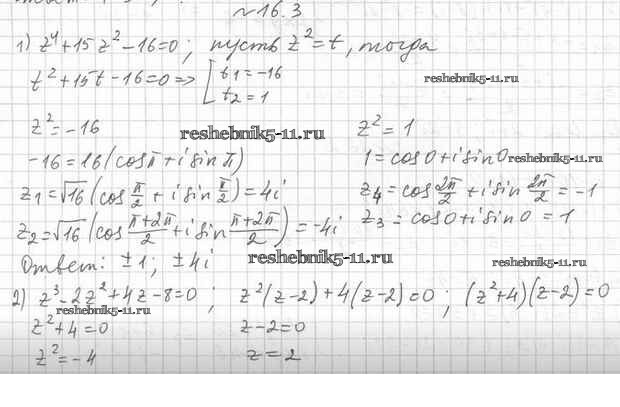 №16.3
1) z⁴+15z²-16=0; пусть z²=t, тогда
t²+15t-16=0 => [t₁=-16
t₂=1
reshebnik5-11.ru
z²=-16
reshebnik5-11.ru
z²=1
-16=16(cosπ+i sinπ)
1=cos0+i sin0
reshebnik5-11.ru
z₁=√16(cos π/2 + i sin π/2)=4i
z₄=cos 2π/2 + i sin 2π/2 = -1
z₂=√16(cos (π+2π)/2 + i sin (π+2π)/2)=-4i
z₃=cos0+i sin0=1
Ответ: ±1; ±4i
reshebnik5-11.ru
reshebnik5-11.ru
2) z³-2z²+4z-8=0; z²(z-2)+4(z-2)=0; (z²+4)(z-2)=0
reshebnik5-11.ru
z²+4=0
z-2=0
z²=-4
z=2